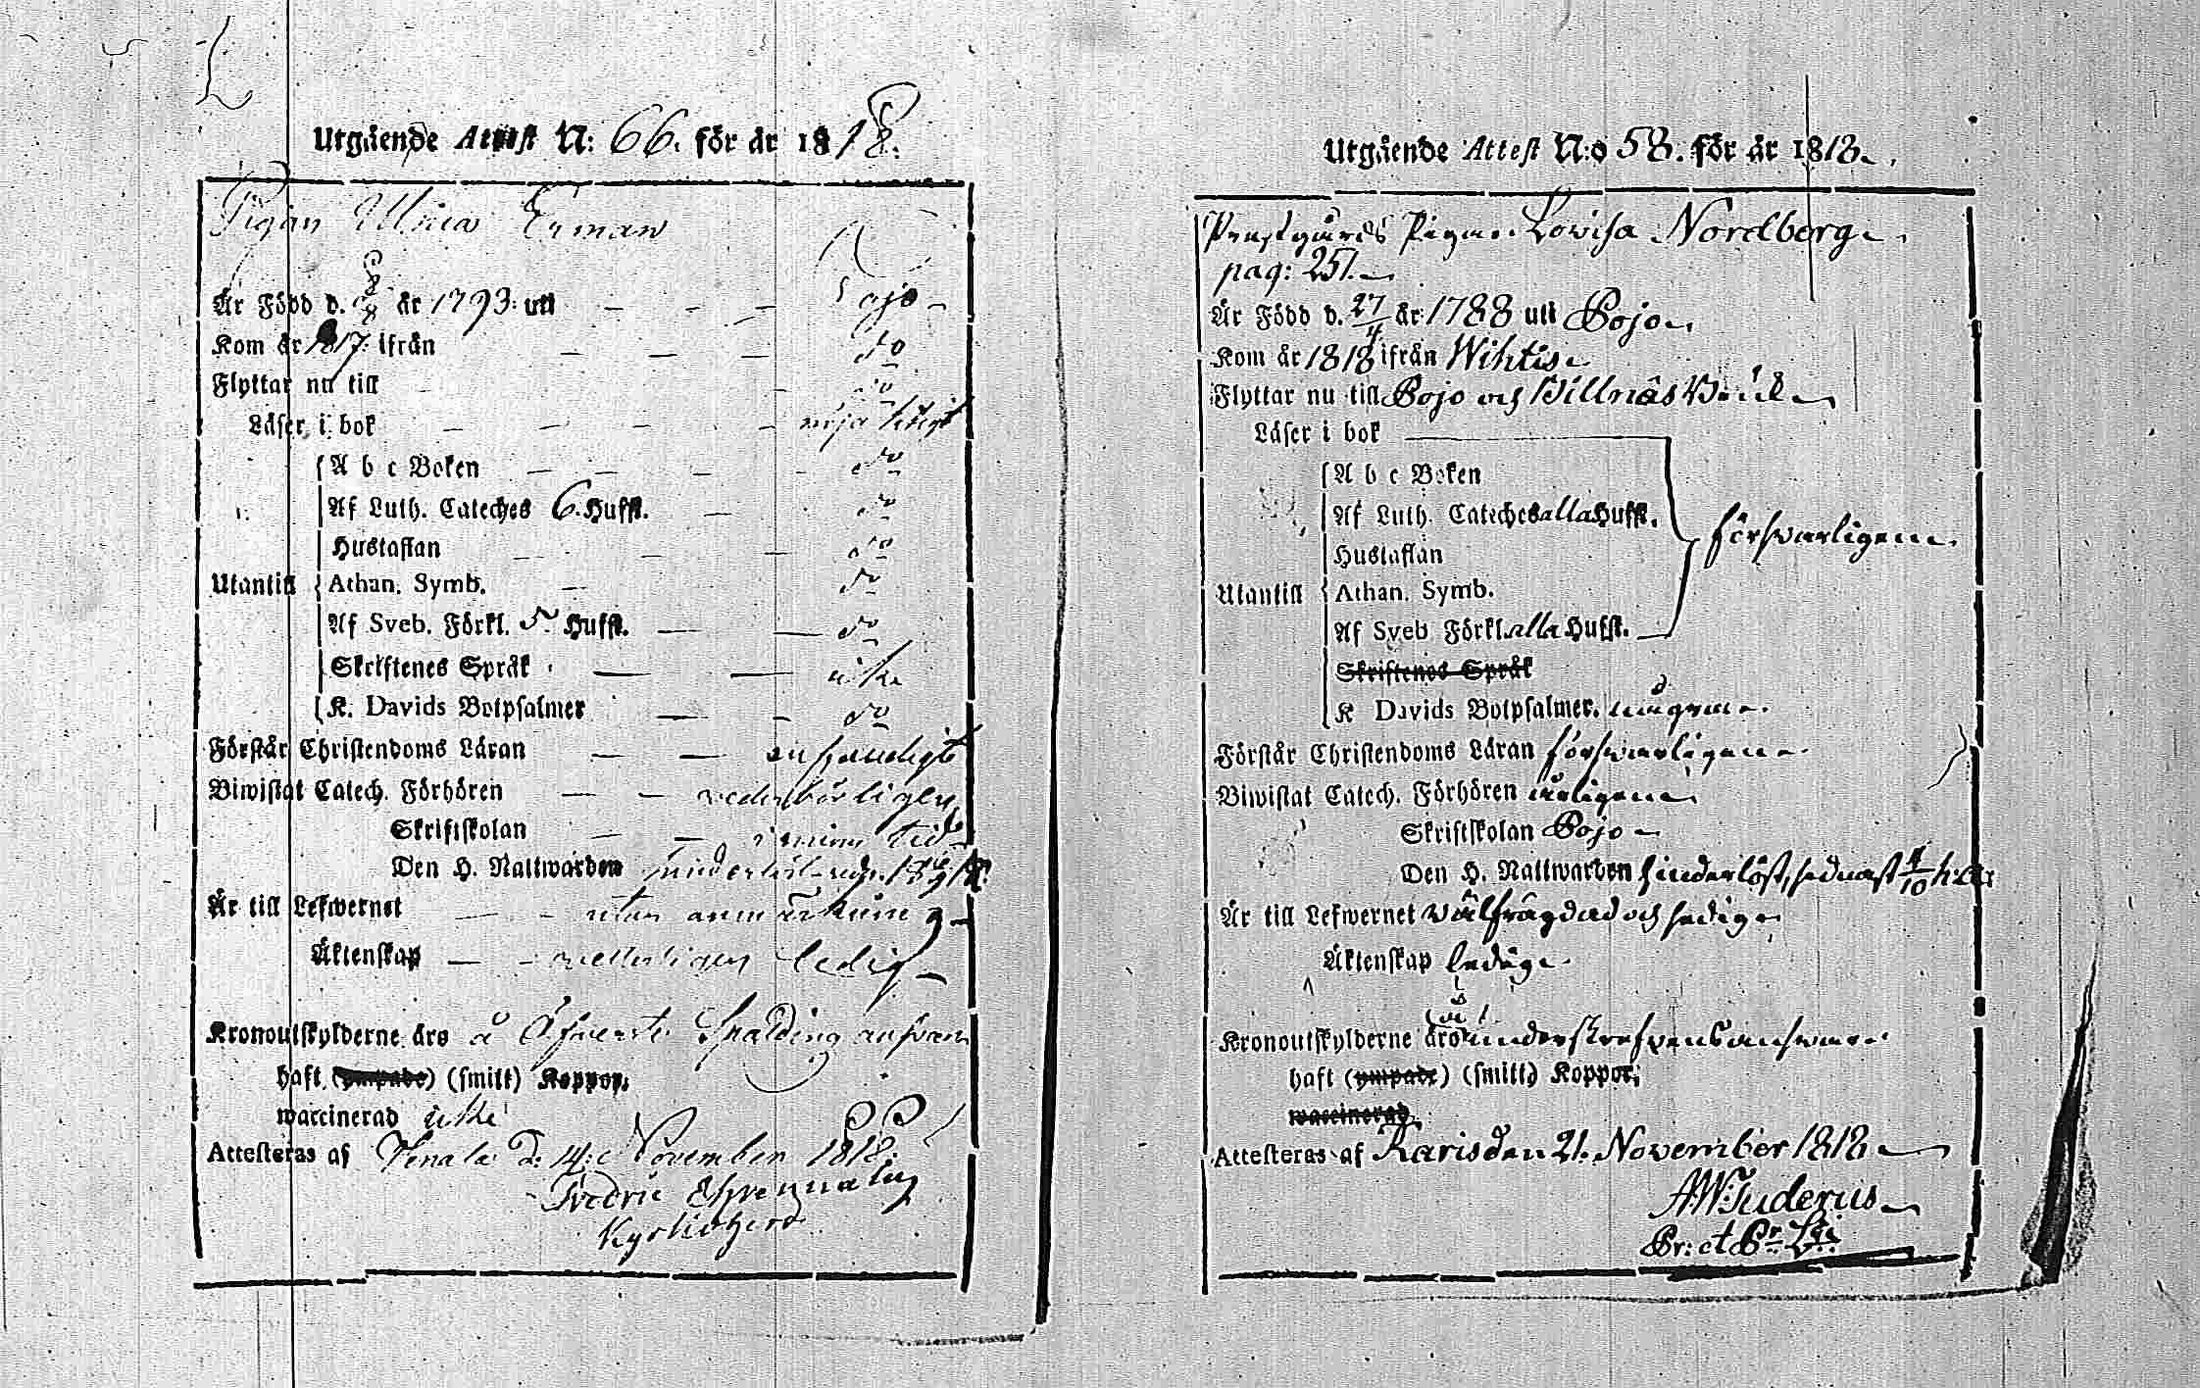 Utgående Attest N: 66. för år 1818.
Pigan Ulrica Erman
Är Född d. 8/8 år 1793: uti Pojo
Kom år 1817: ifrån do
Flyttar nu till do
Läser i bok nöjaktigt
A b c Boken do
Af Luth. Cateches 6. Hufst. do
Hustaflan do
Utantill Athan. Symb. do
Af Sveb. Förkl. 5. Hufst. do
Skriftenes Språk icke
K. Davids Botpsalmer do
Förstår Christendoms Läran
Biwistat Catech. Förhören vederbörligen
Skriftskolan i sinom tid
Den H. Nattwarden
Är till Lefwernet utan anmärkning
Äktenskap ledig
Kronoutskylderne äro å Öfverste Spalding ansvar
haft (ympade) (smitt) Koppor.
waccinerad icke
Attesteras af Tenala d: 14: November 1818.
Fredric Ehrenmalm
Kyrkoherd
Utgående Attest N:o 58. för år 1818.
Prestgårds Pigan Lovisa Nordberg
pag: 251.
Är Född d. 27/4 år 1788 uti Pojo.
Kom år 1818 ifrån Wihtis
Flyttar nu till Pojo och Billnäs Bruk
Läser i bok
A b c Boken
Af Luth. Cateches alla Hufst.
försvarligen.
Hustaflan
Utantill Athan. Symb.
Af Sveb Förkl. alla Hufst.
Skriftenes Språk
K Davids Botpsalmer. någon
Förstår Christendoms Läran försvarligen
Biwistat Catech. Förhören årligen
Skriftskolan Pojo
Den H. Nattwarden hinderlöst, sednast 4/10 h.a.
Är till Lefwernet välfrägdad och sedig
Äktenskap ledig
Kronoutskylderne äro underskrefvens ansvar
haft (ympade) (smitt) Koppor;
waccinerad
Attesteras af Karis den 21. November 1818
A W: Tuderus
Pr: et Pr: